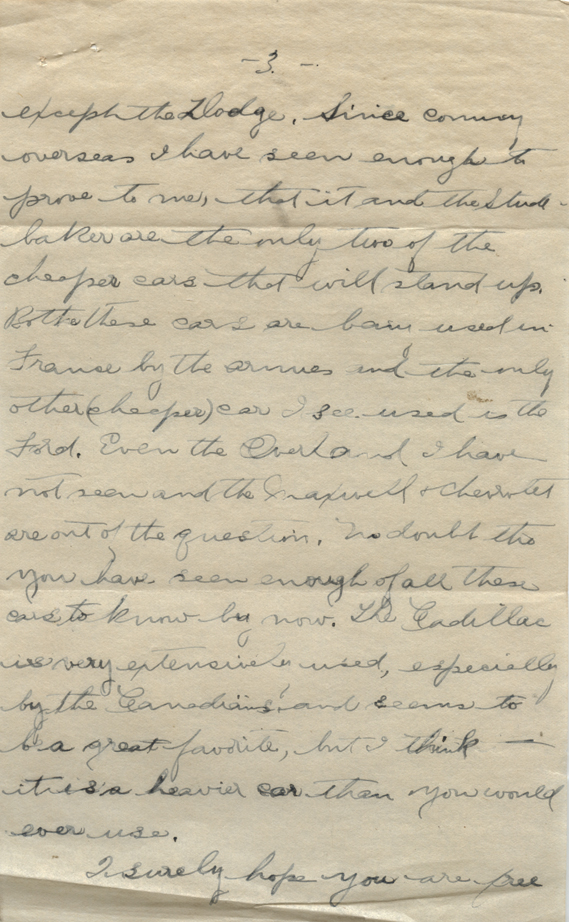 - 3. -
except the Dodge. Since coming
overseas I have seen enough to
prove to me, that it and the Stude-
baker are the only two of the
cheaper cars that will stand up.
Both these cars are being used in
France by the armies and the only
other (cheaper) car I see used is the
Ford. Even the Overland I have
not seen and the Maxwell & Chevrolet
are out of the question. No doubt tho
you have seen enough of all these
cars to know by now. The Cadillac
is very extensively used, especially
by the Canadians, and seems to
be a great favorite, but I think —
it is a heavier car than you would
ever use.
I surely hope you are free